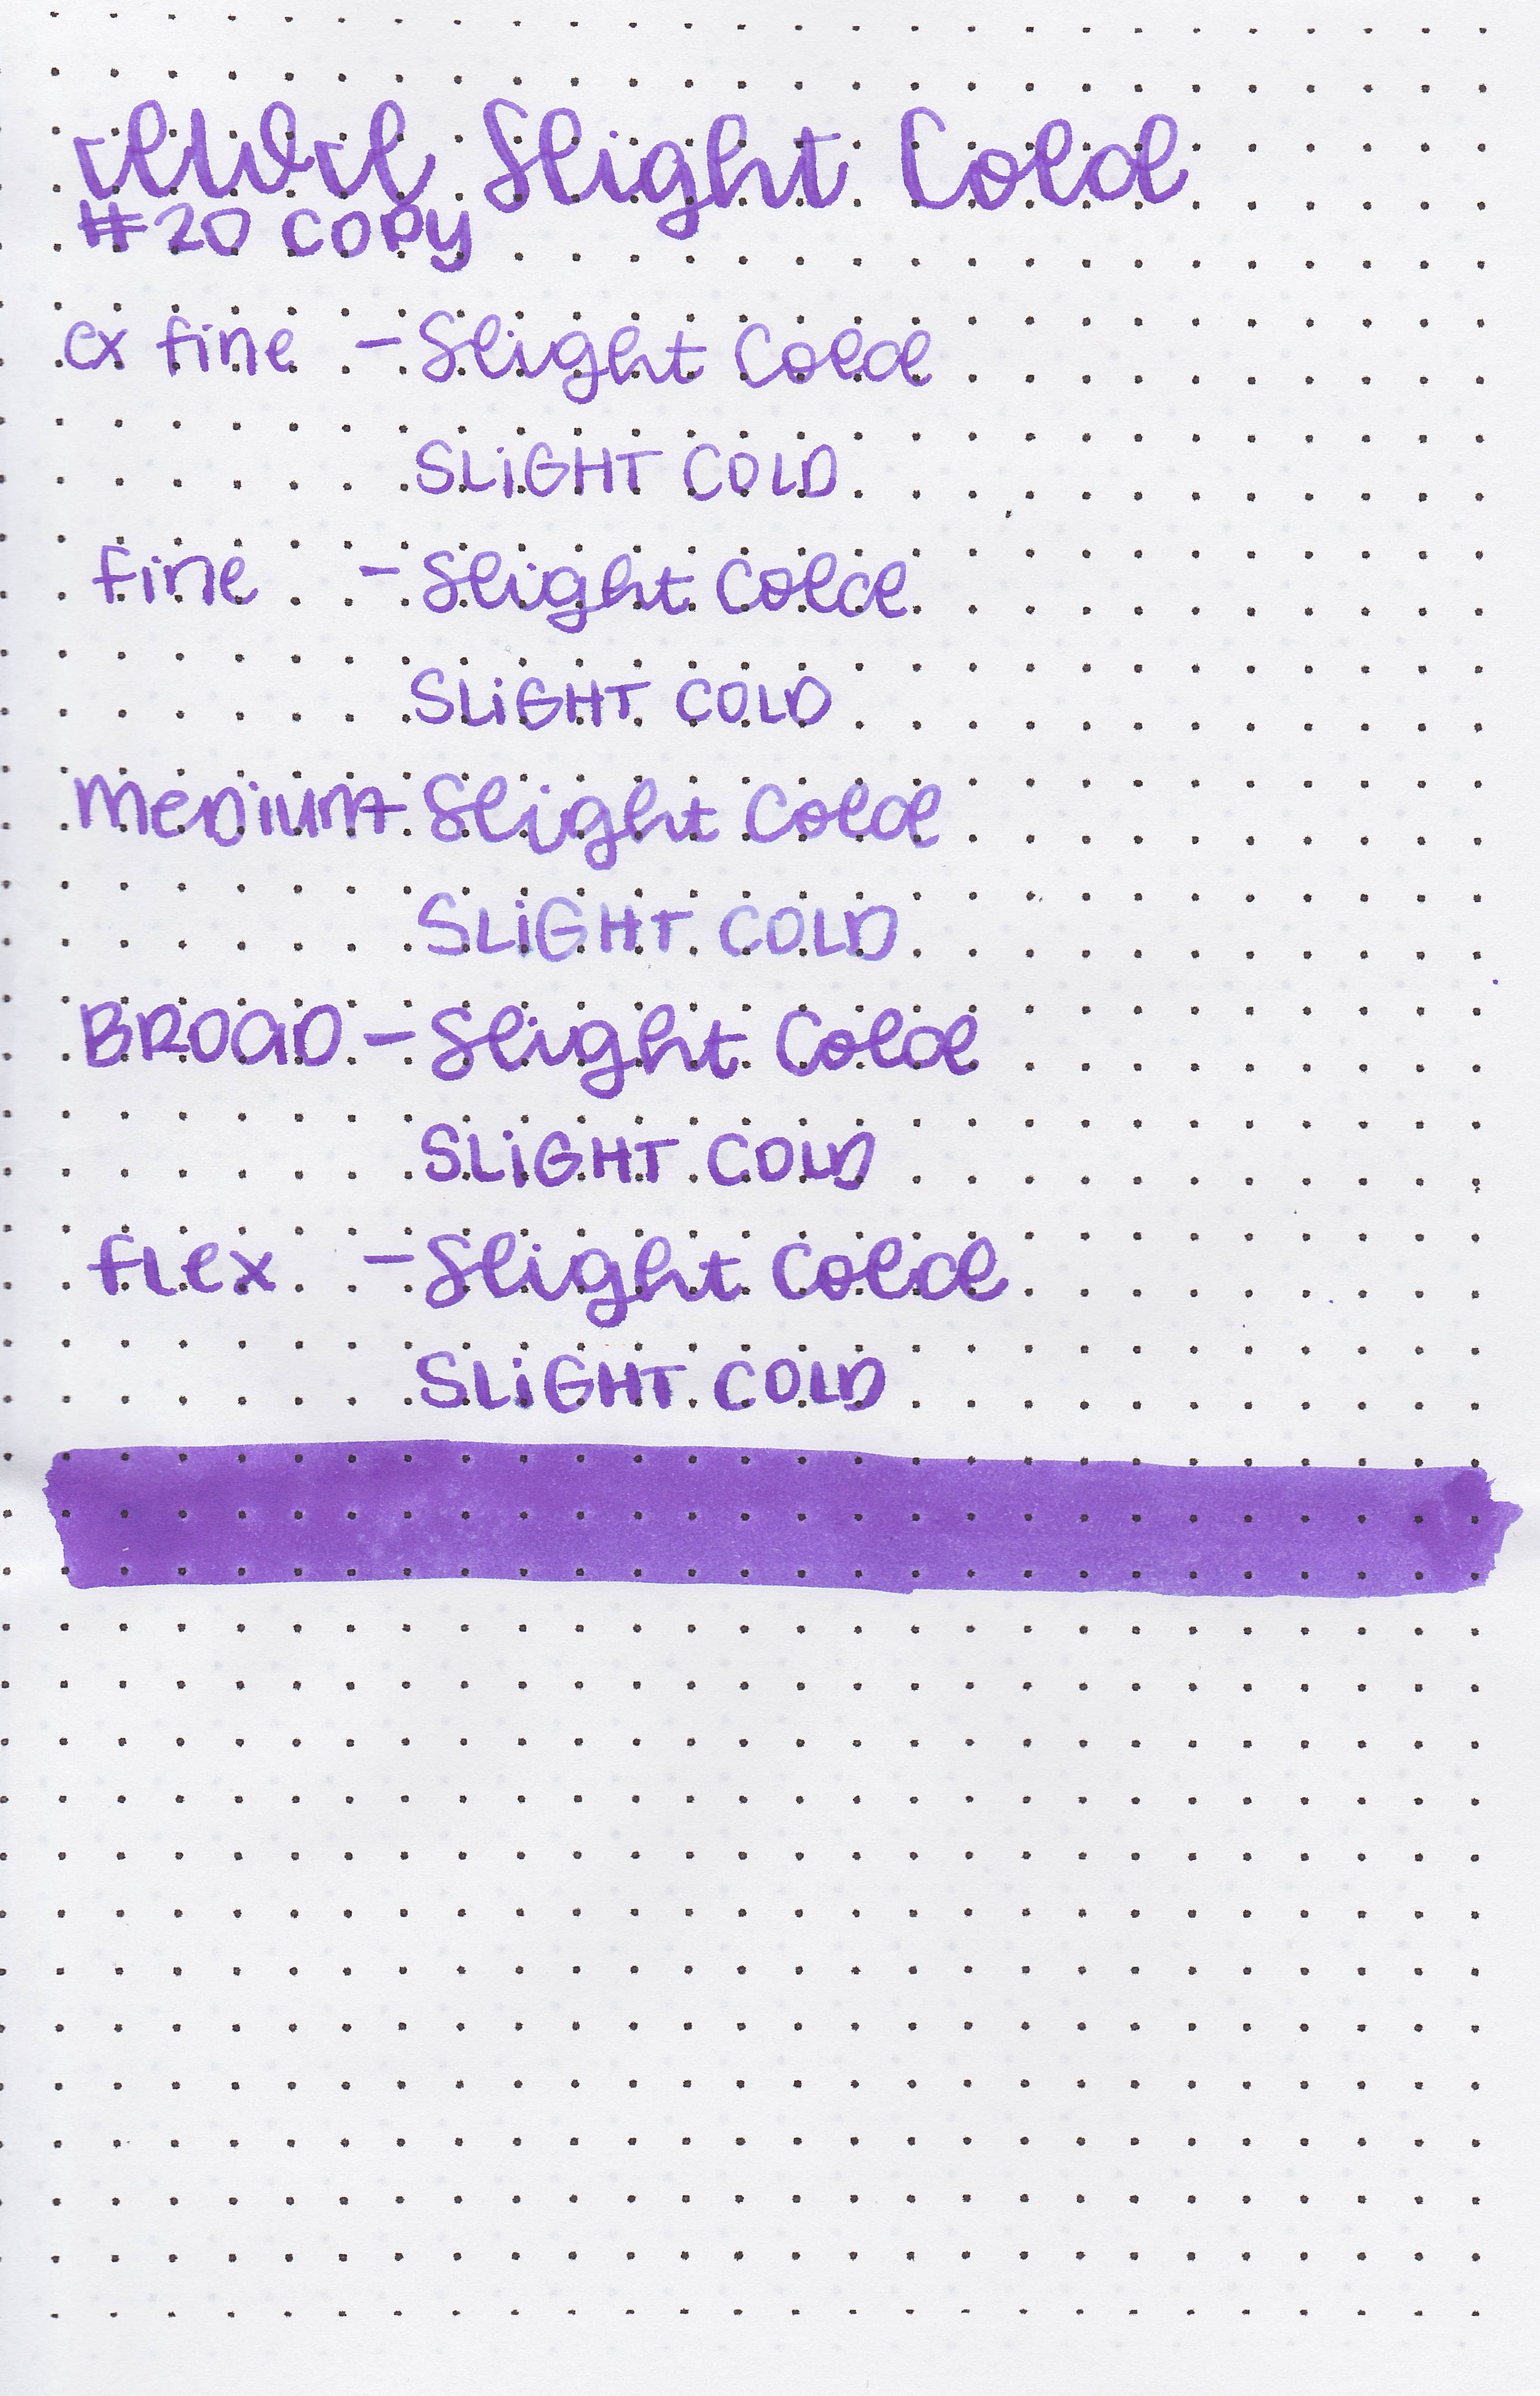 IWI Slight Cold
#20 COPY
ex fine - Slight Cold
SLiGHT COLD
fine - Slight Cold
SLiGHT COLD
MeDium - Slight Cold
SLiGHT COLD
BROaD - Slight Cold
SLiGHT COLD
fLex - Slight Cold
SLiGHT COLD